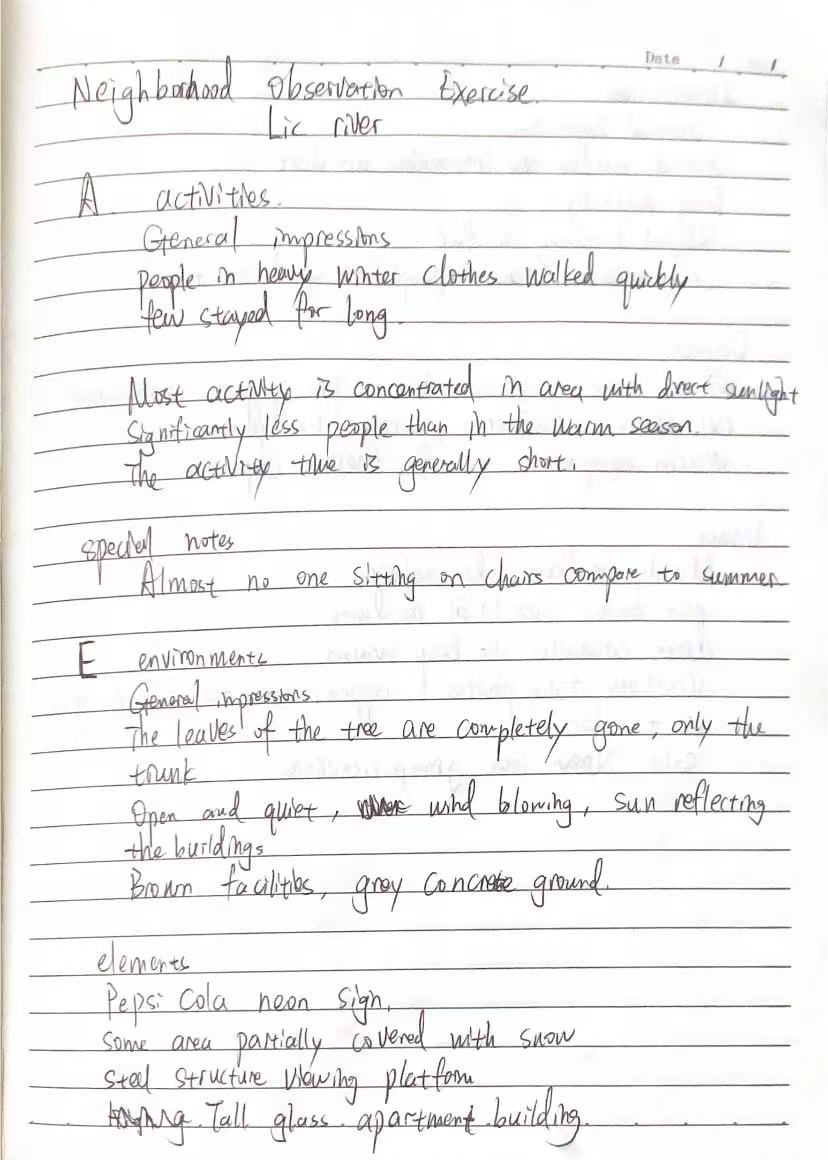 Date / /
Neighborhood Observation Exercise.
Lic river
A activities.
General impressions
people in heavy winter clothes walked quickly
few stayed for long.
Most activity is concentrated in area with direct sunlight
Significantly less people than in the warm season.
The activity time is generally short.
special notes
Almost no one sitting on chairs compare to summer
E environments
General impressions
The leaves of the tree are completely gone, only the
trunk
Open and quiet, wind blowing, sun reflecting
the buildings
Brown facilities, grey concrete ground.
elements
Pepsi Cola neon sign.
some area partially covered with snow
steel structure viewing platform
Tall glass apartment building.